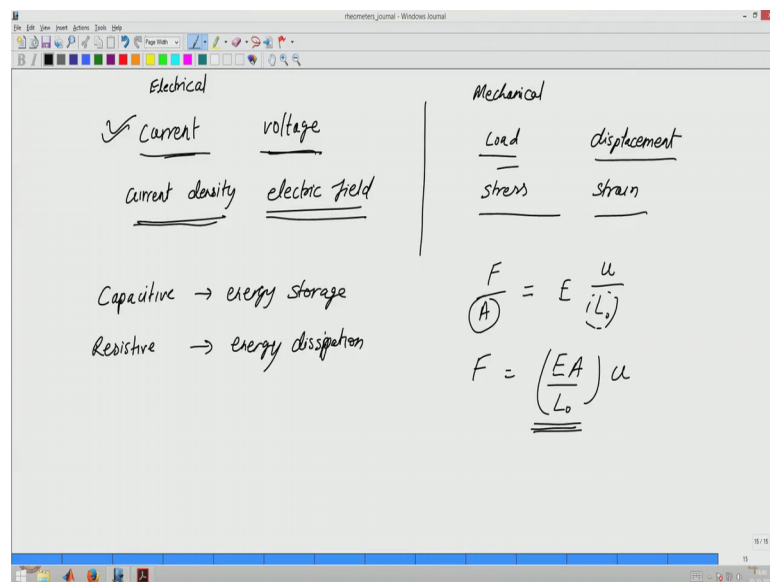 rheometers_journal - Windows Journal
File Edit View Insert Actions Tools Help
Page Width
B I
Electrical
Current voltage
current density electric field
Capacitive → energy storage
Resistive → energy dissipation
Mechanical
Load displacement
stress strain
F/A = E u/L₀
F = (EA/L₀) u
15 / 15
15